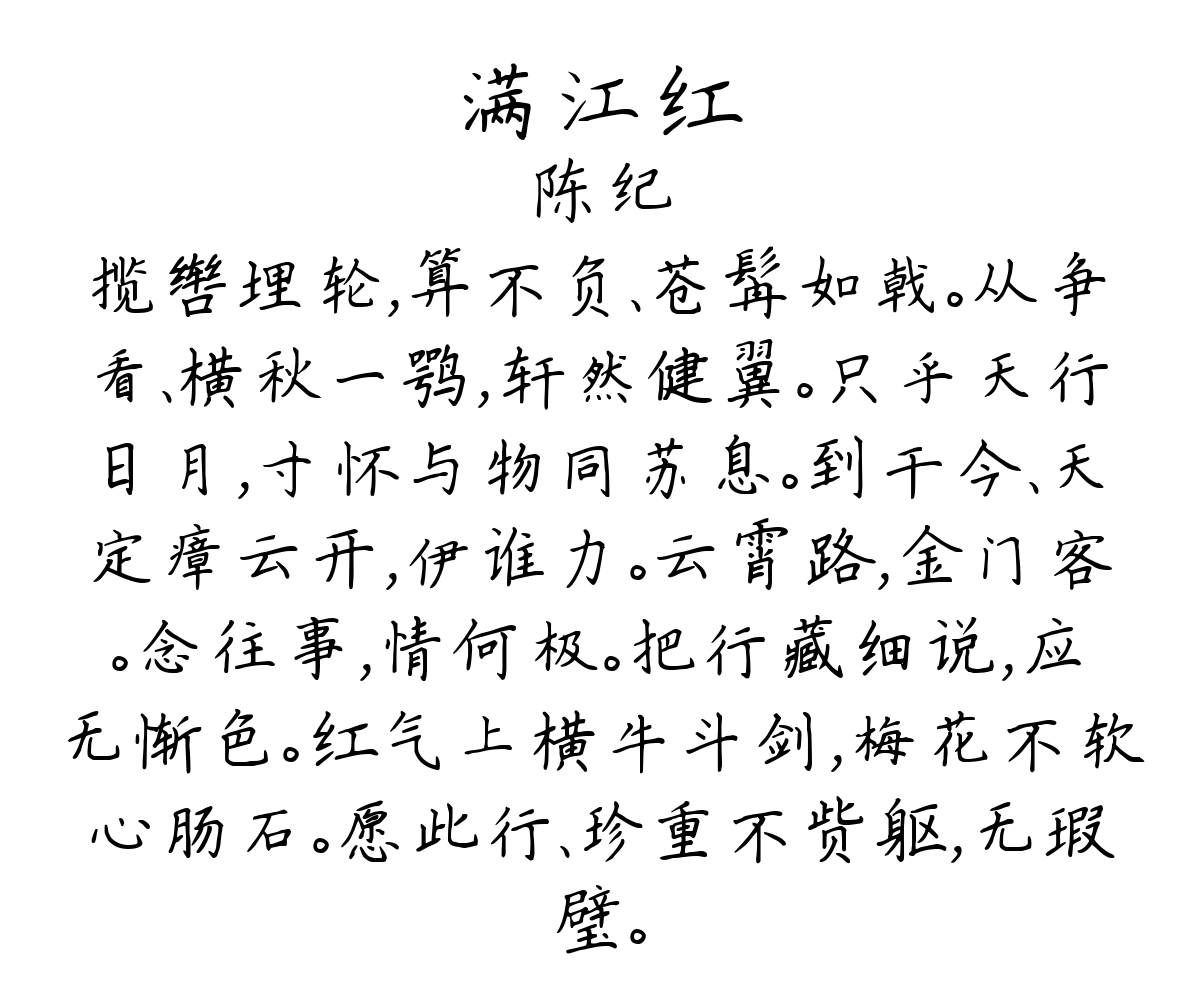 满江红
陈纪
揽辔埋轮,算不负、苍髯如戟。从争
看、横秋一鹗,轩然健翼。只乎天行
日月,寸怀与物同苏息。到干今、天
定瘴云开,伊谁力。云霄路,金门客
。念往事,情何极。把行藏细说,应
无惭色。红气上横牛斗剑,梅花不软
心肠石。愿此行、珍重不赀躯,无瑕
璧。